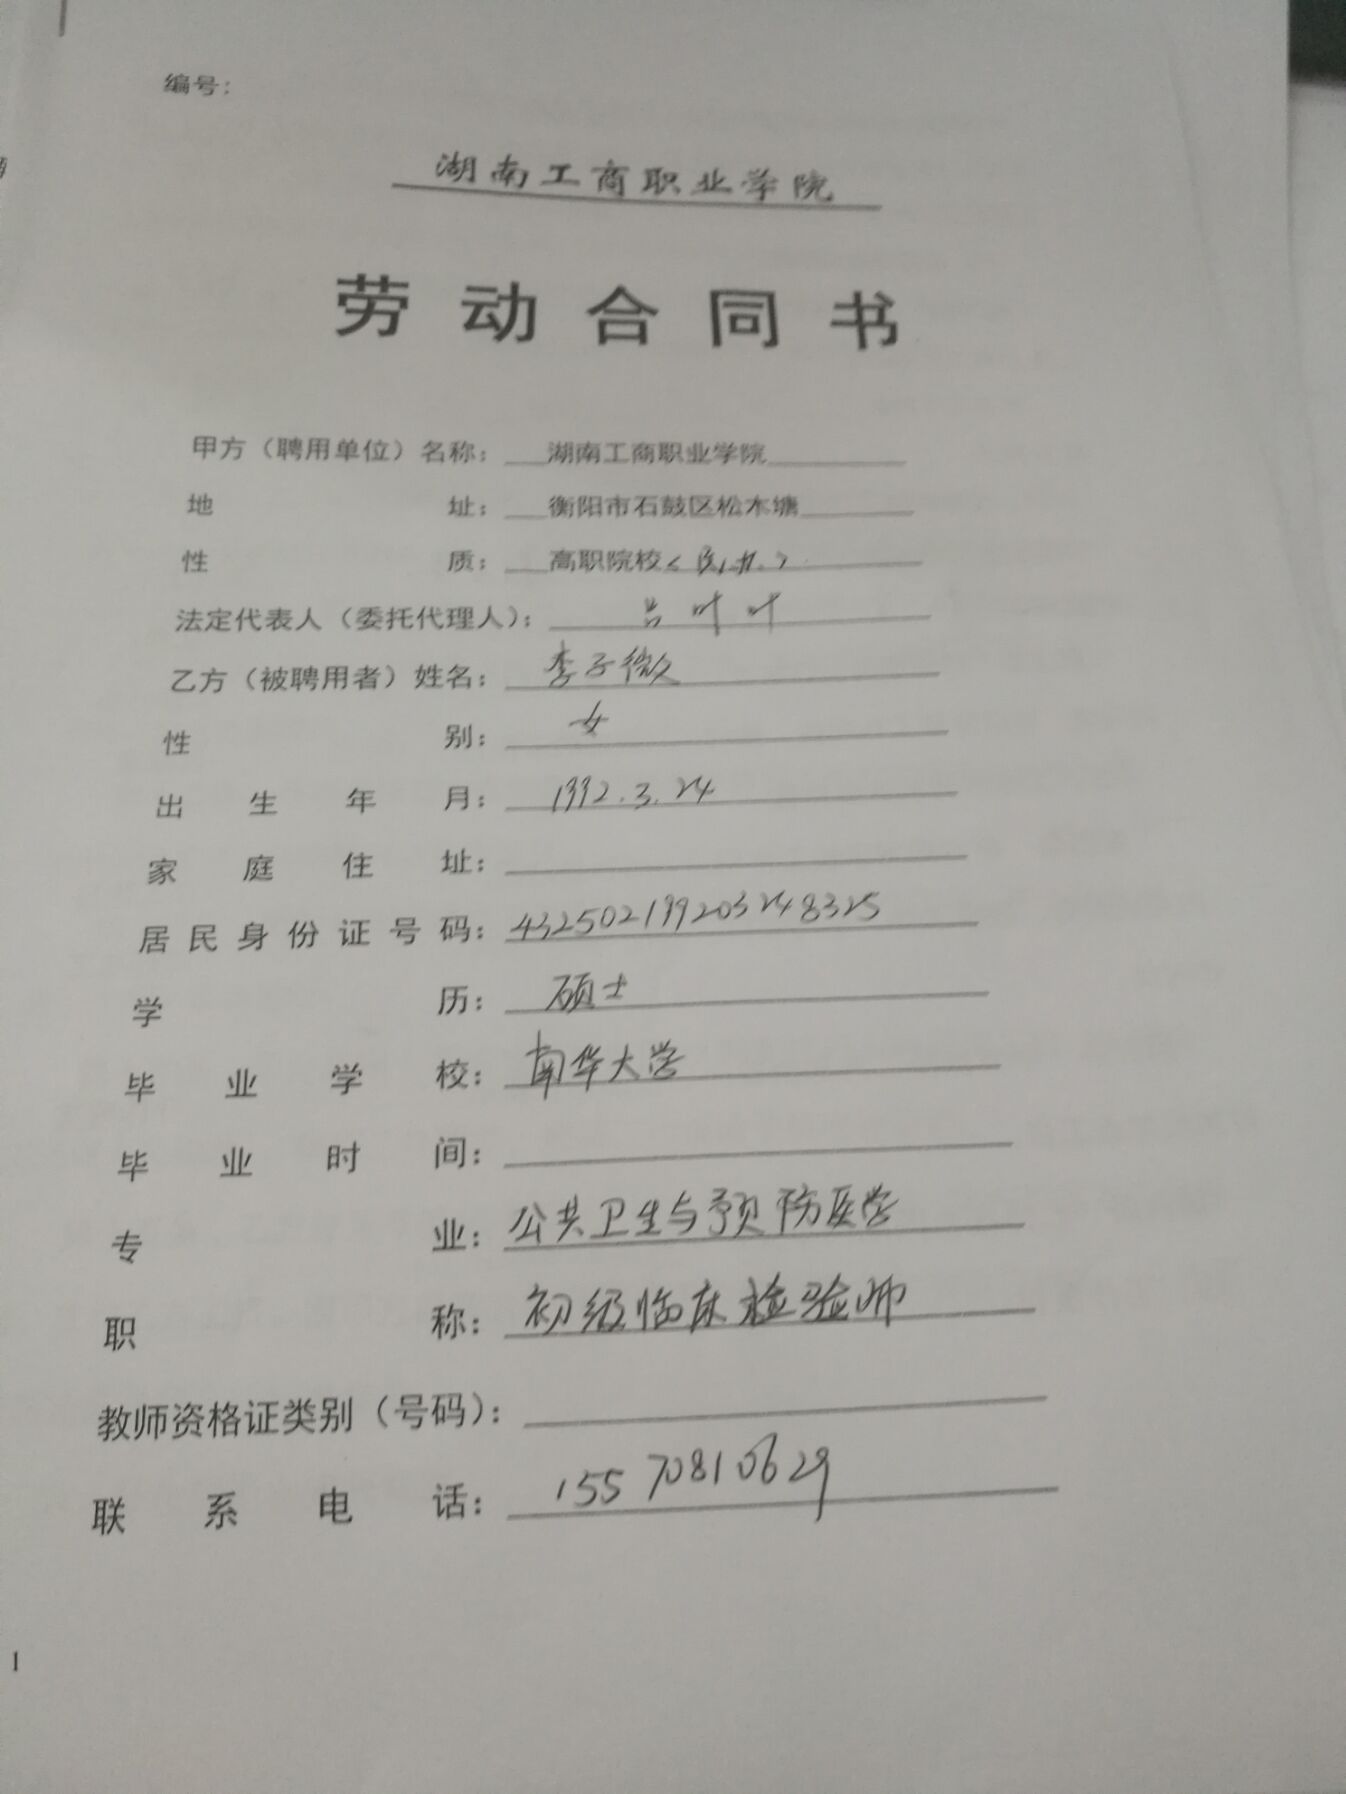 编号：
湖南工商职业学院
劳动合同书
甲方（聘用单位）名称：湖南工商职业学院
地址：衡阳市石鼓区松木塘
性质：高职院校
法定代表人（委托代理人）：吕叶叶
乙方（被聘用者）姓名：李子微
性别：女
出生年月：1992.3.24
家庭住址：
居民身份证号码：432502199203248325
学历：硕士
毕业学校：南华大学
毕业时间：
专业：公共卫生与预防医学
职称：初级临床检验师
教师资格证类别（号码）：
联系电话：15570810629
1